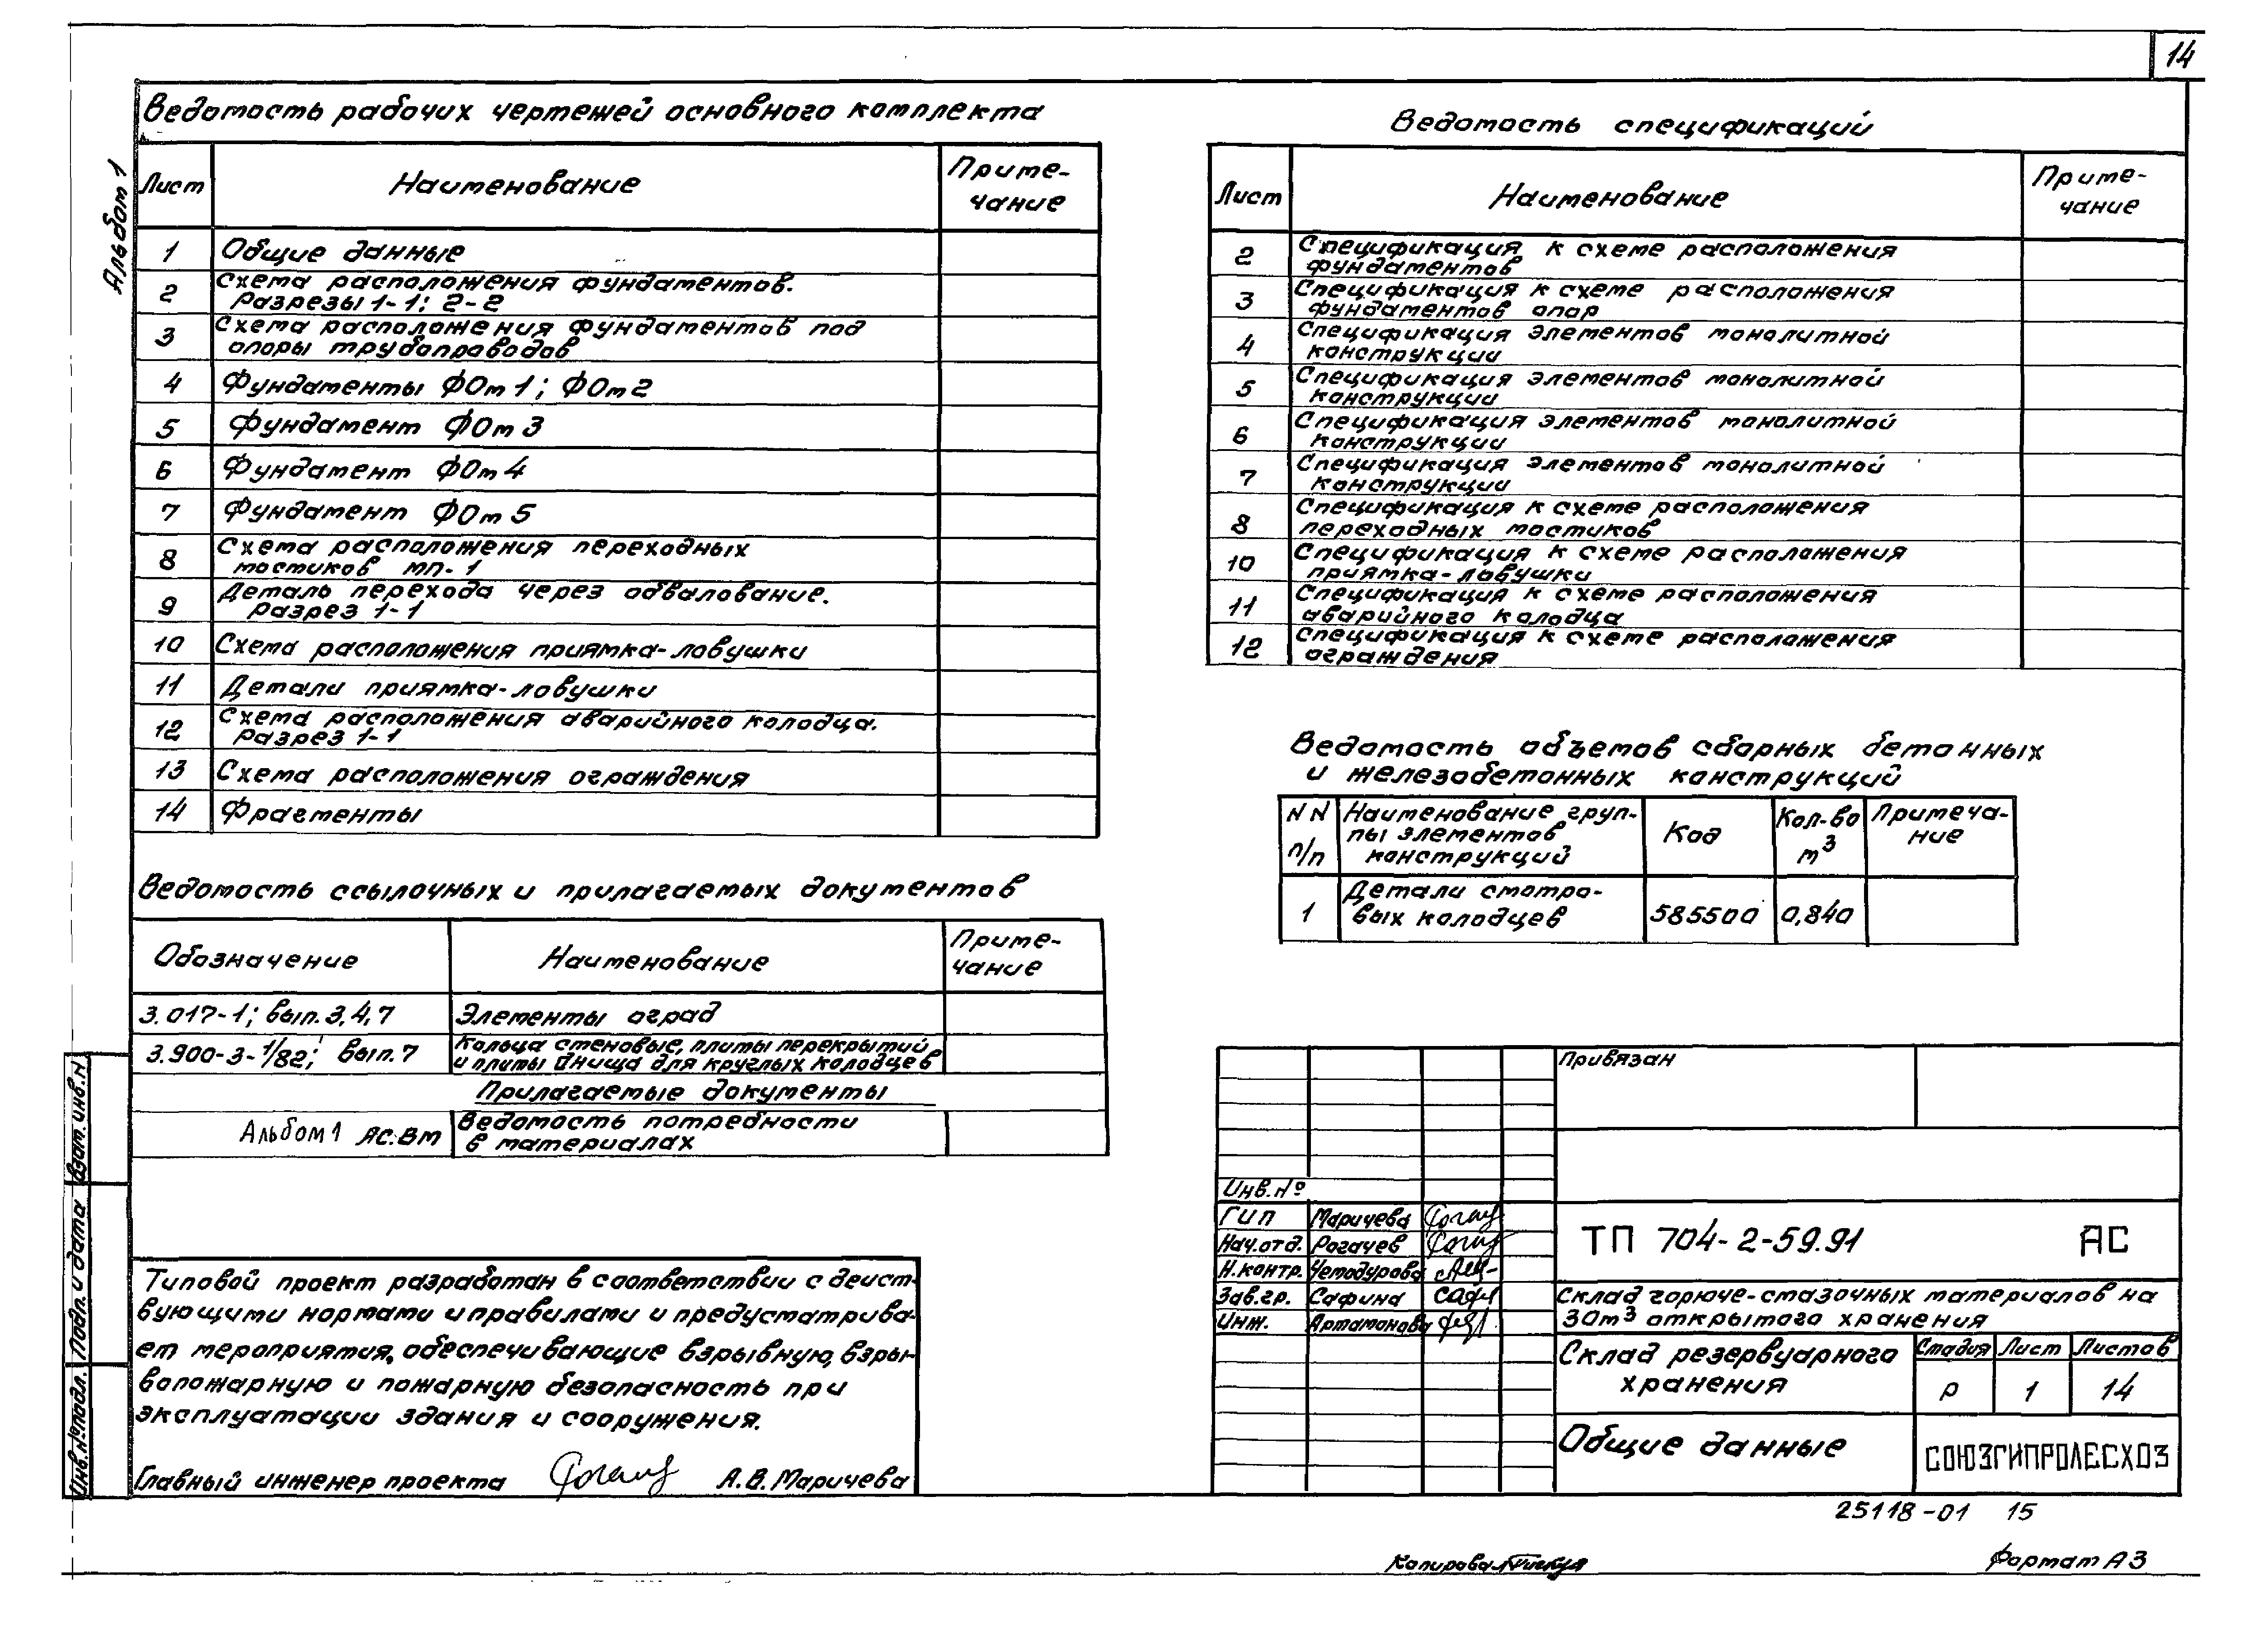 14
Альбом 1
Ведомость рабочих чертежей основного комплекта
Лист Наименование Приме-
чание
1 Общие данные
2 Схема расположения фундаментов.
Разрезы 1-1; 2-2
3 Схема расположения фундаментов под
опоры трубопроводов
4 Фундаменты ФОм 1; ФОм 2
5 Фундамент ФОм 3
6 Фундамент ФОм 4
7 Фундамент ФОм 5
8 Схема расположения переходных
мостиков МП-1
9 Деталь перехода через обвалование.
Разрез 1-1
10 Схема расположения приямка-ловушки
11 Детали приямка-ловушки
12 Схема расположения аварийного колодца.
Разрез 1-1
13 Схема расположения ограждения
14 Фрагменты
Ведомость ссылочных и прилагаемых документов
Обозначение Наименование Приме-
чание
3.017-1; вып. 3,4,7 Элементы оград
3.900-3-1/82; вып. 7 Кольца стеновые, плиты перекрытий
и плиты днища для круглых колодцев
Прилагаемые документы
Альбом 1 АС.ВМ Ведомость потребности
в материалах
Типовой проект разработан в соответствии с дейст-
вующими нормами и правилами и предусматрива-
ет мероприятия, обеспечивающие взрывную, взры-
вопожарную и пожарную безопасность при
эксплуатации здания и сооружения.
Главный инженер проекта А.В. Маричева
Взам. инв. N
Подп. и дата
Инв. N подл.
Ведомость спецификаций
Лист Наименование Приме-
чание
2 Спецификация к схеме расположения
фундаментов
3 Спецификация к схеме расположения
фундаментов опор
4 Спецификация элементов монолитной
конструкции
5 Спецификация элементов монолитной
конструкции
6 Спецификация элементов монолитной
конструкции
7 Спецификация элементов монолитной
конструкции
8 Спецификация к схеме расположения
переходных мостиков
10 Спецификация к схеме расположения
приямка-ловушки
11 Спецификация к схеме расположения
аварийного колодца
12 Спецификация к схеме расположения
ограждения
Ведомость объемов сборных бетонных
и железобетонных конструкций
NN
п/п Наименование груп-
пы элементов
конструкций Код Кол-во
м3 Примеча-
ние
1 Детали смотро-
вых колодцев 585500 0,840
Привязан
Инв. №
ГИП Маричева
Нач. отд. Рогачев
Н. контр. Чемодурова
Зав. гр. Сафина
Инж. Артамонова
ТП 704-2-59.91 АС
Склад горюче-смазочных материалов на
30м3 открытого хранения
Склад резервуарного
хранения
Стадия Лист Листов
Р 1 14
Общие данные
СОЮЗГИПРОЛЕСХОЗ
25118-01 15
Копировал
Формат А3